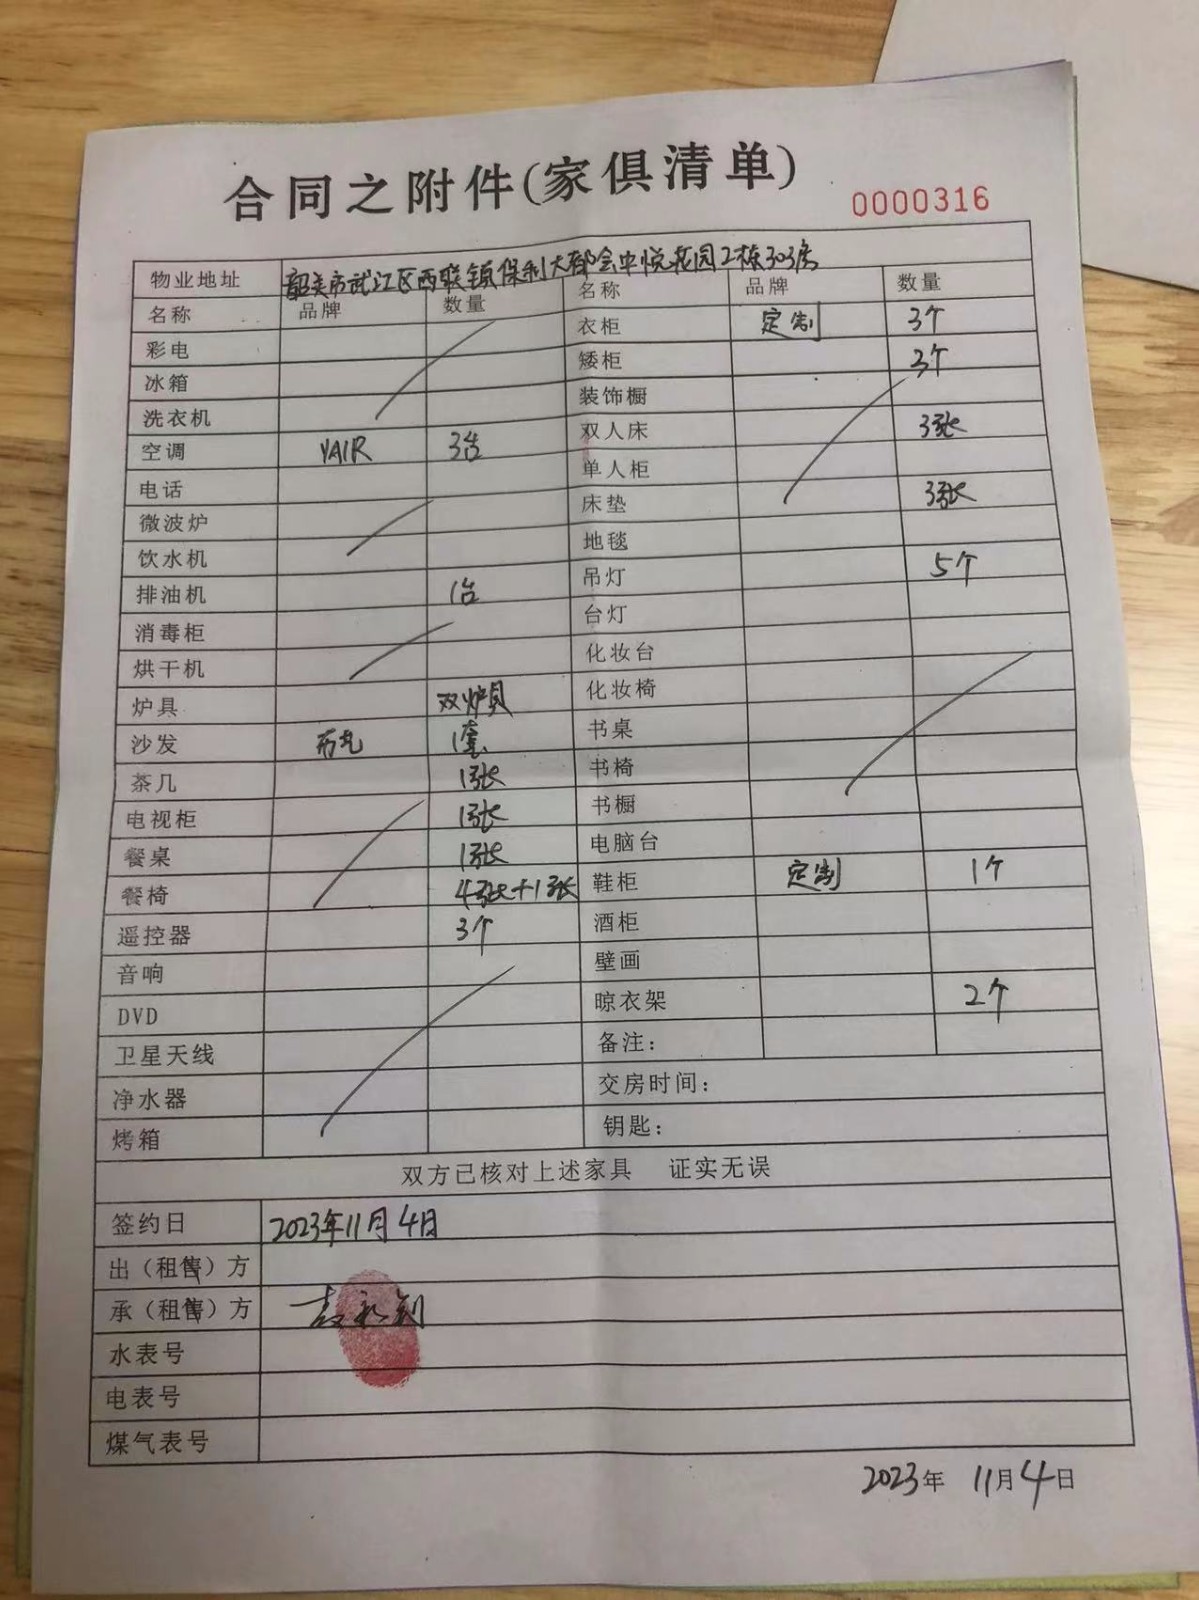 合同之附件(家俱清单)
0000316
物业地址 韶关市武江区西联镇保利大都会中悦花园2栋303房
名称 品牌 数量 名称 品牌 数量
彩电 衣柜 定制 3个
冰箱 矮柜 3个
洗衣机 装饰橱
空调 YAIR 3台 双人床 3张
电话 单人柜
微波炉 床垫 3张
饮水机 地毯
排油机 1台 吊灯 5个
消毒柜 台灯
烘干机 化妆台
炉具 双炉具 化妆椅
沙发 1套 书桌
茶几 1张 书椅
电视柜 1张 书橱
餐桌 1张 电脑台
餐椅 4张+1张 鞋柜 定制 1个
遥控器 3个 酒柜
音响 壁画
DVD 晾衣架 2个
卫星天线 备注：
净水器 交房时间：
烤箱 钥匙：
双方已核对上述家具 证实无误
签约日 2023年11月4日
出（租售）方
承（租售）方
水表号
电表号
煤气表号
2023年 11月4日